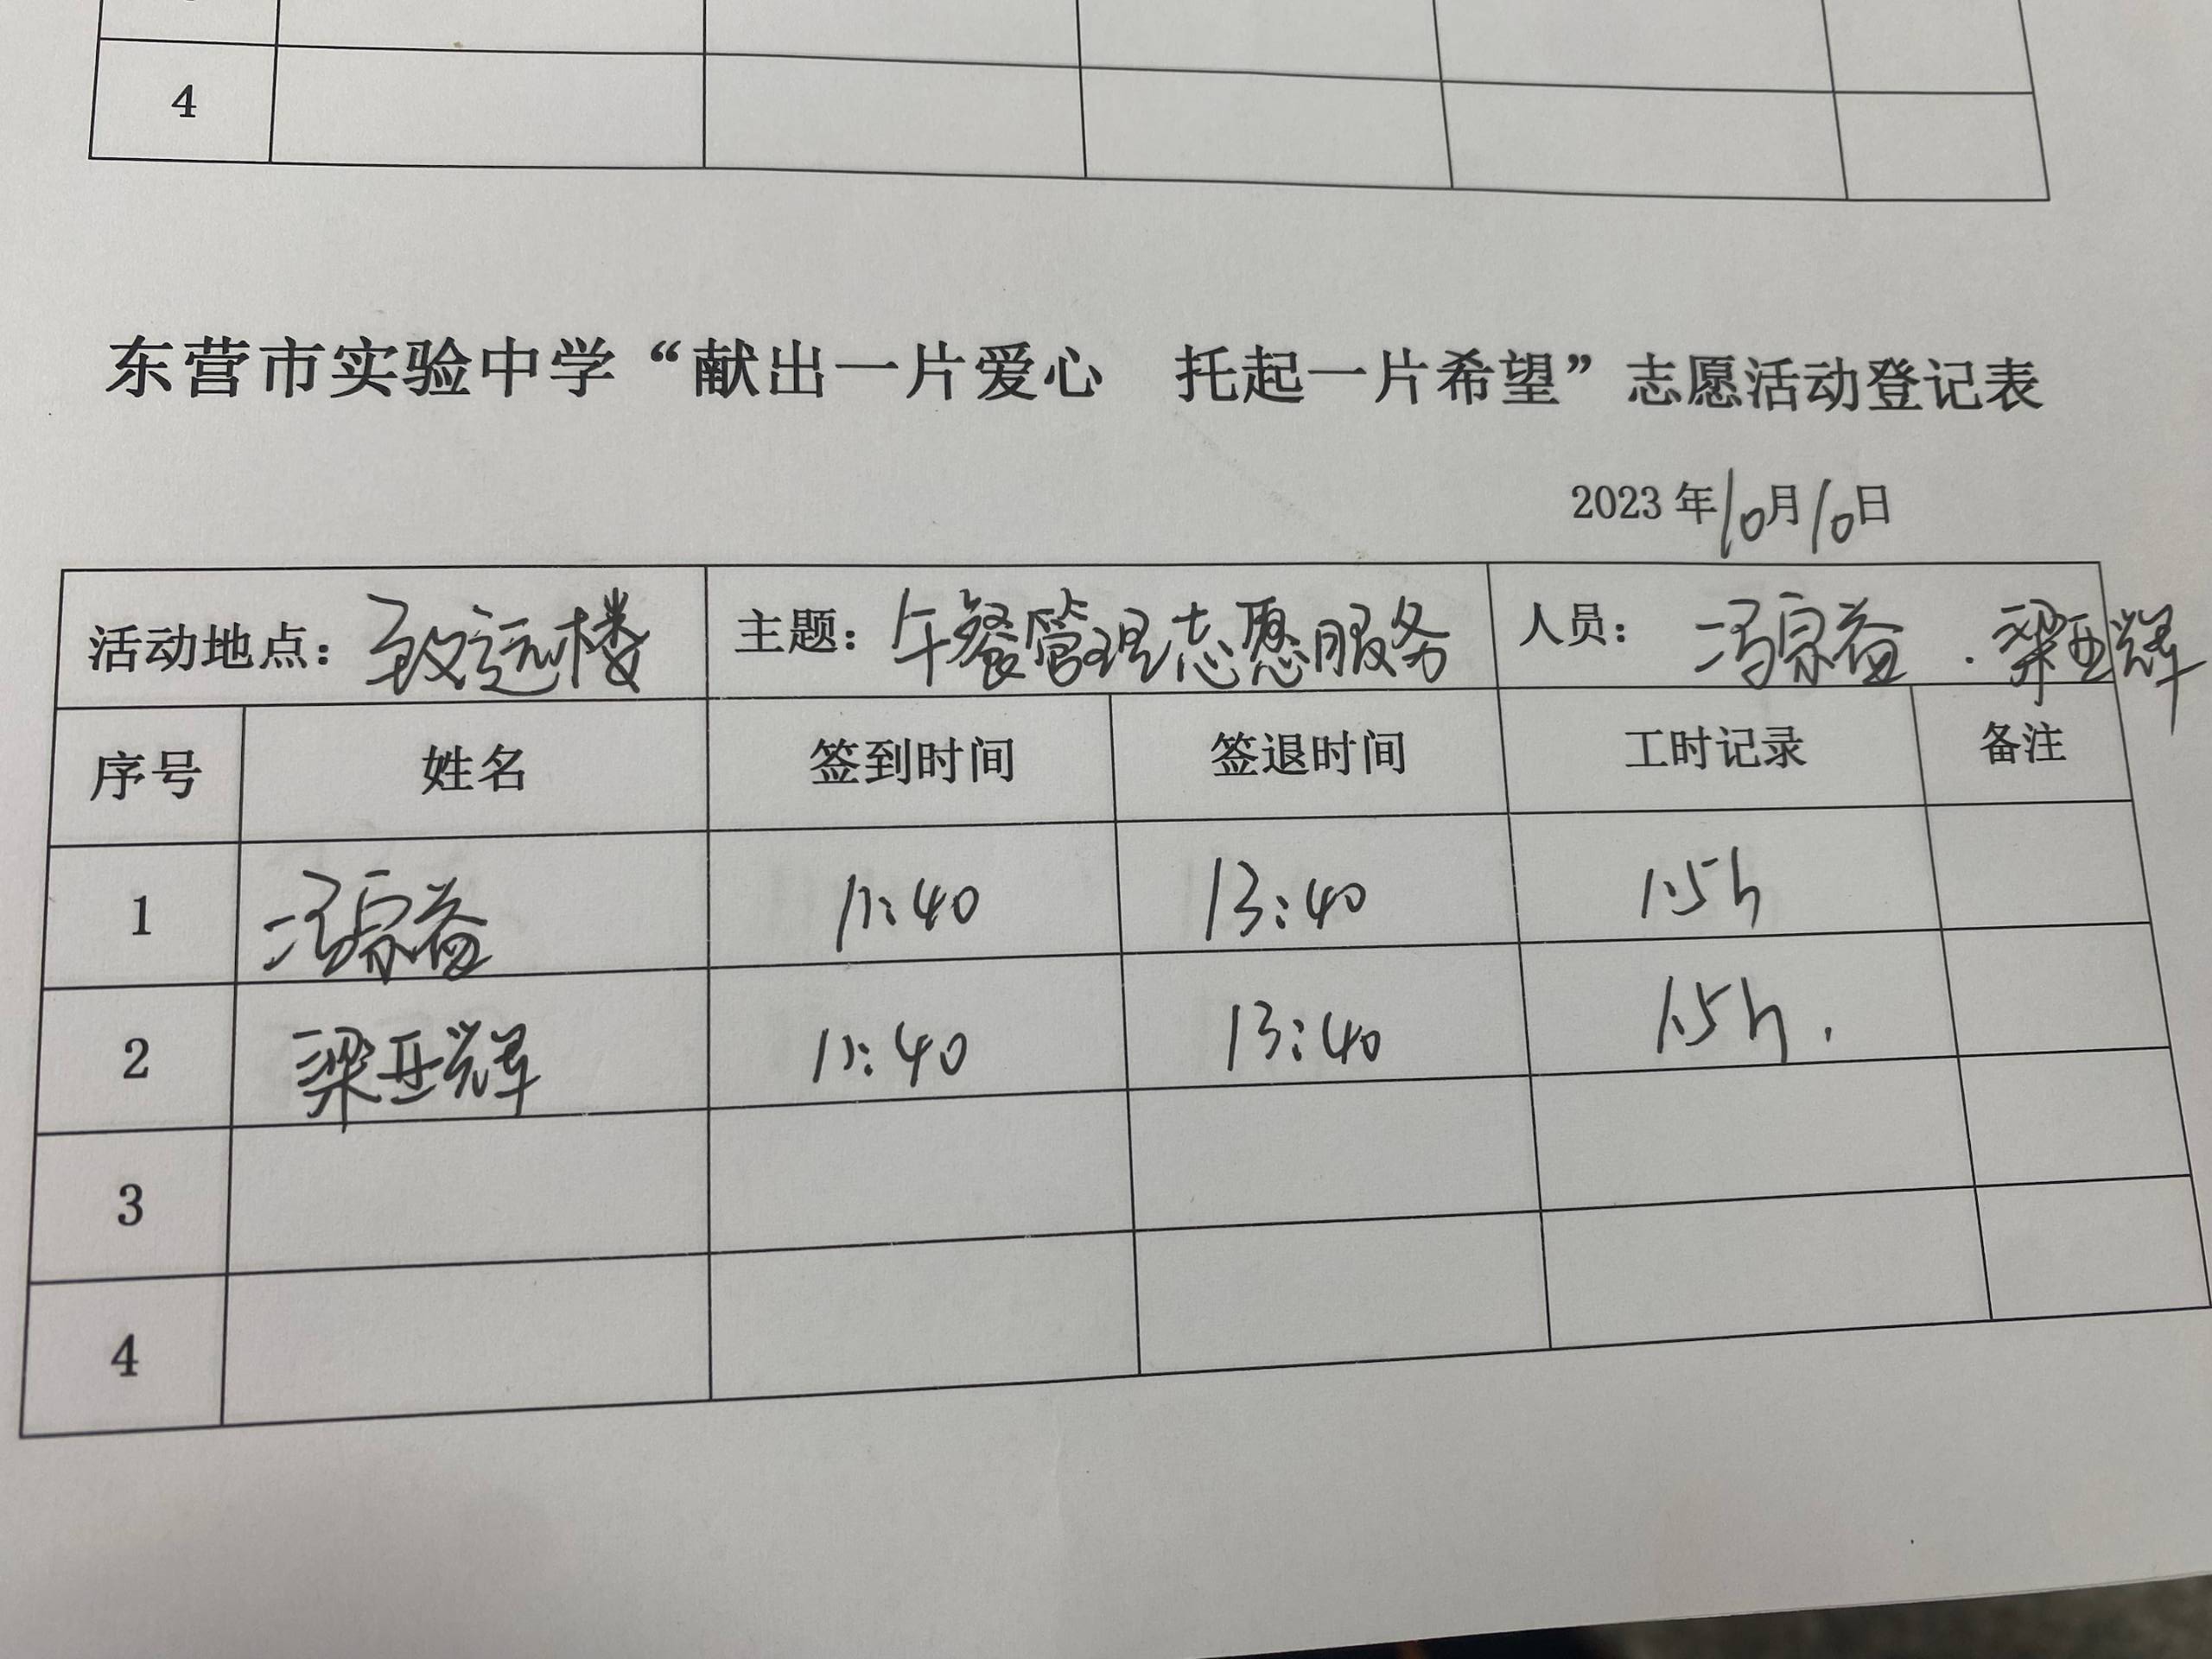 4
东营市实验中学“献出一片爱心　托起一片希望”志愿活动登记表
2023 年10月10日
活动地点：致远楼 主题：午餐管理志愿服务 人员： 冯宗益 . 梁亚辉
序号 姓名 签到时间 签退时间 工时记录 备注
1 冯宗益 11:40 13:40 1.5h
2 梁亚辉 11:40 13:40 1.5h.
3
4